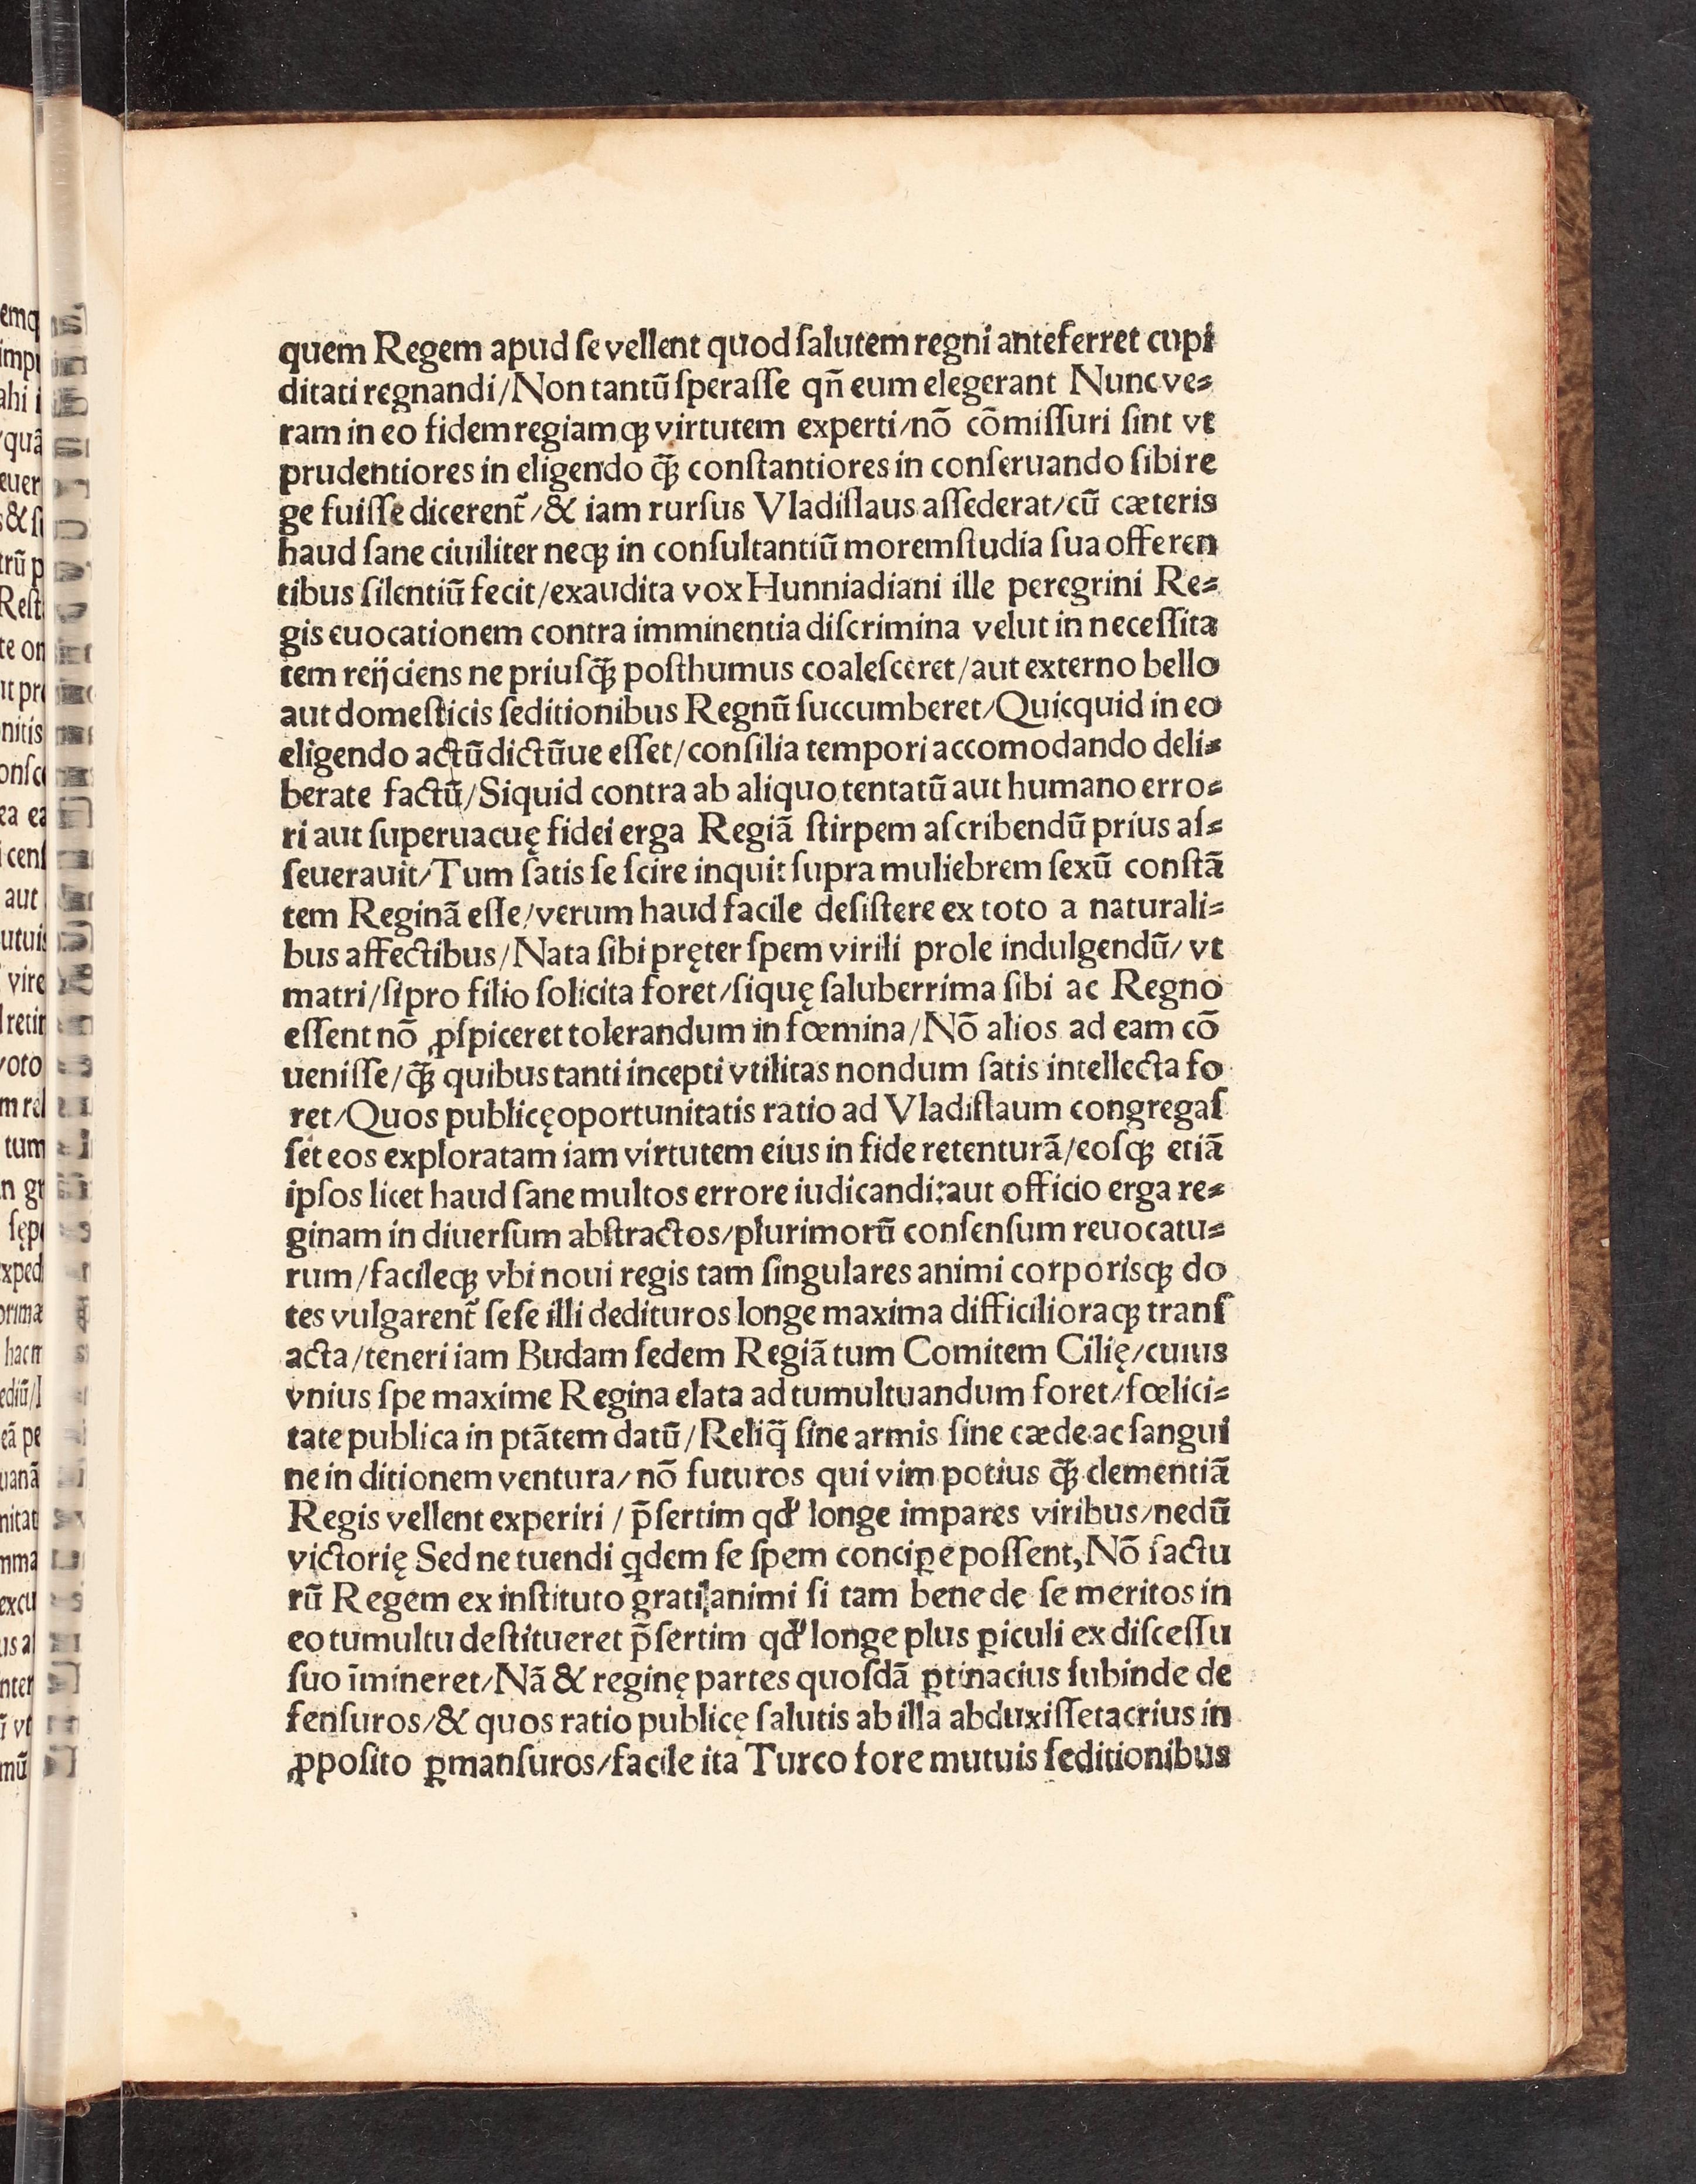 quem Regem apud ſe vellent quod ſalutem regni anteferret cupi
ditati regnandi/Non tantū ſperaſſe qn̄ eum elegerant Nunc ve⸗
ram in eo fidem regiamqꝫ virtutem experti/nō cōmiſſuri ſint vt
prudentiores in eligendo q̄ꝫ conſtantiores in conſeruando ſibi re
ge fuiſſe dicerent̄/& iam rurſus Vladiſlaus aſſederat/cū cæteris
haud ſane ciuiliter neqꝫ in conſultantiū morem ſtudia ſua offeren
tibus ſilentiū fecit/exaudita vox Hunniadiani ille peregrini Re⸗
gis euocationem contra imminentia diſcrimina velut in neceſſita
tem reijciens ne priuſq̄ꝫ poſthumus coaleſceret/aut externo bello
aut domeſticis ſeditionibus Regnū ſuccumberet/Quicquid in eo
eligendo actū dictūue eſſet/conſilia tempori accomodando deli⸗
berate factū/Siquid contra ab aliquo tentatū aut humano erro⸗
ri aut ſuperuacuę fidei erga Regiā ſtirpem aſcribendū prius aſ⸗
ſeuerauit/Tum ſatis ſe ſcire inquit ſupra muliebrem ſexū conſtā
tem Reginā eſſe/verum haud facile deſiſtere ex toto a naturali⸗
bus affectibus/Nata ſibi pręter ſpem virili prole indulgendū/ vt
matri/ſi pro filio ſolicita foret/ſiquę ſaluberrima ſibi ac Regno
eſſent nō ꝓſpiceret tolerandum in fœmina/Nō alios ad eam cō
ueniſſe/q̄ꝫ quibus tanti incepti vtilitas nondum ſatis intellecta fo
ret/Quos publicę oportunitatis ratio ad Vladiſlaum congregaſ
ſet eos exploratam iam virtutem eius in fide retenturā/eoſqꝫ etiā
ipſos licet haud ſane multos errore iudicandi:aut officio erga re⸗
ginam in diuerſum abſtractos/plurimorū conſenſum reuocatu⸗
rum/facileqꝫ vbi noui regis tam ſingulares animi corporisqꝫ do
tes vulgarent̄ ſeſe illi dedituros longe maxima difficilioraqꝫ tranſ
acta/teneri iam Budam ſedem Regiā tum Comitem Cilię/cuius
vnius ſpe maxime Regina elata ad tumultuandum foret/fœlici⸗
tate publica in ptātem datū/Reliq̄ ſine armis ſine cæde ac ſangui
ne in ditionem ventura/nō futuros qui vim potius q̄ꝫ clementiā
Regis vellent experiri / p̄ſertim qd' longe impares viribus/nedū
victorię Sed ne tuendi qdem ſe ſpem conciꝑe poſſent,Nō factu
rū Regem ex inſtituto grati animi ſi tam bene de ſe meritos in
eo tumultu deſtitueret p̄ſertim qd' longe plus ꝑiculi ex diſceſſu
ſuo īmineret/Nā & reginę partes quoſdā ꝑtinacius ſubinde de
fenſuros/& quos ratio publicę ſalutis ab illa abduxiſſet acrius in
ꝓpoſito ꝑmanſuros/facile ita Turco fore mutuis ſeditionibus